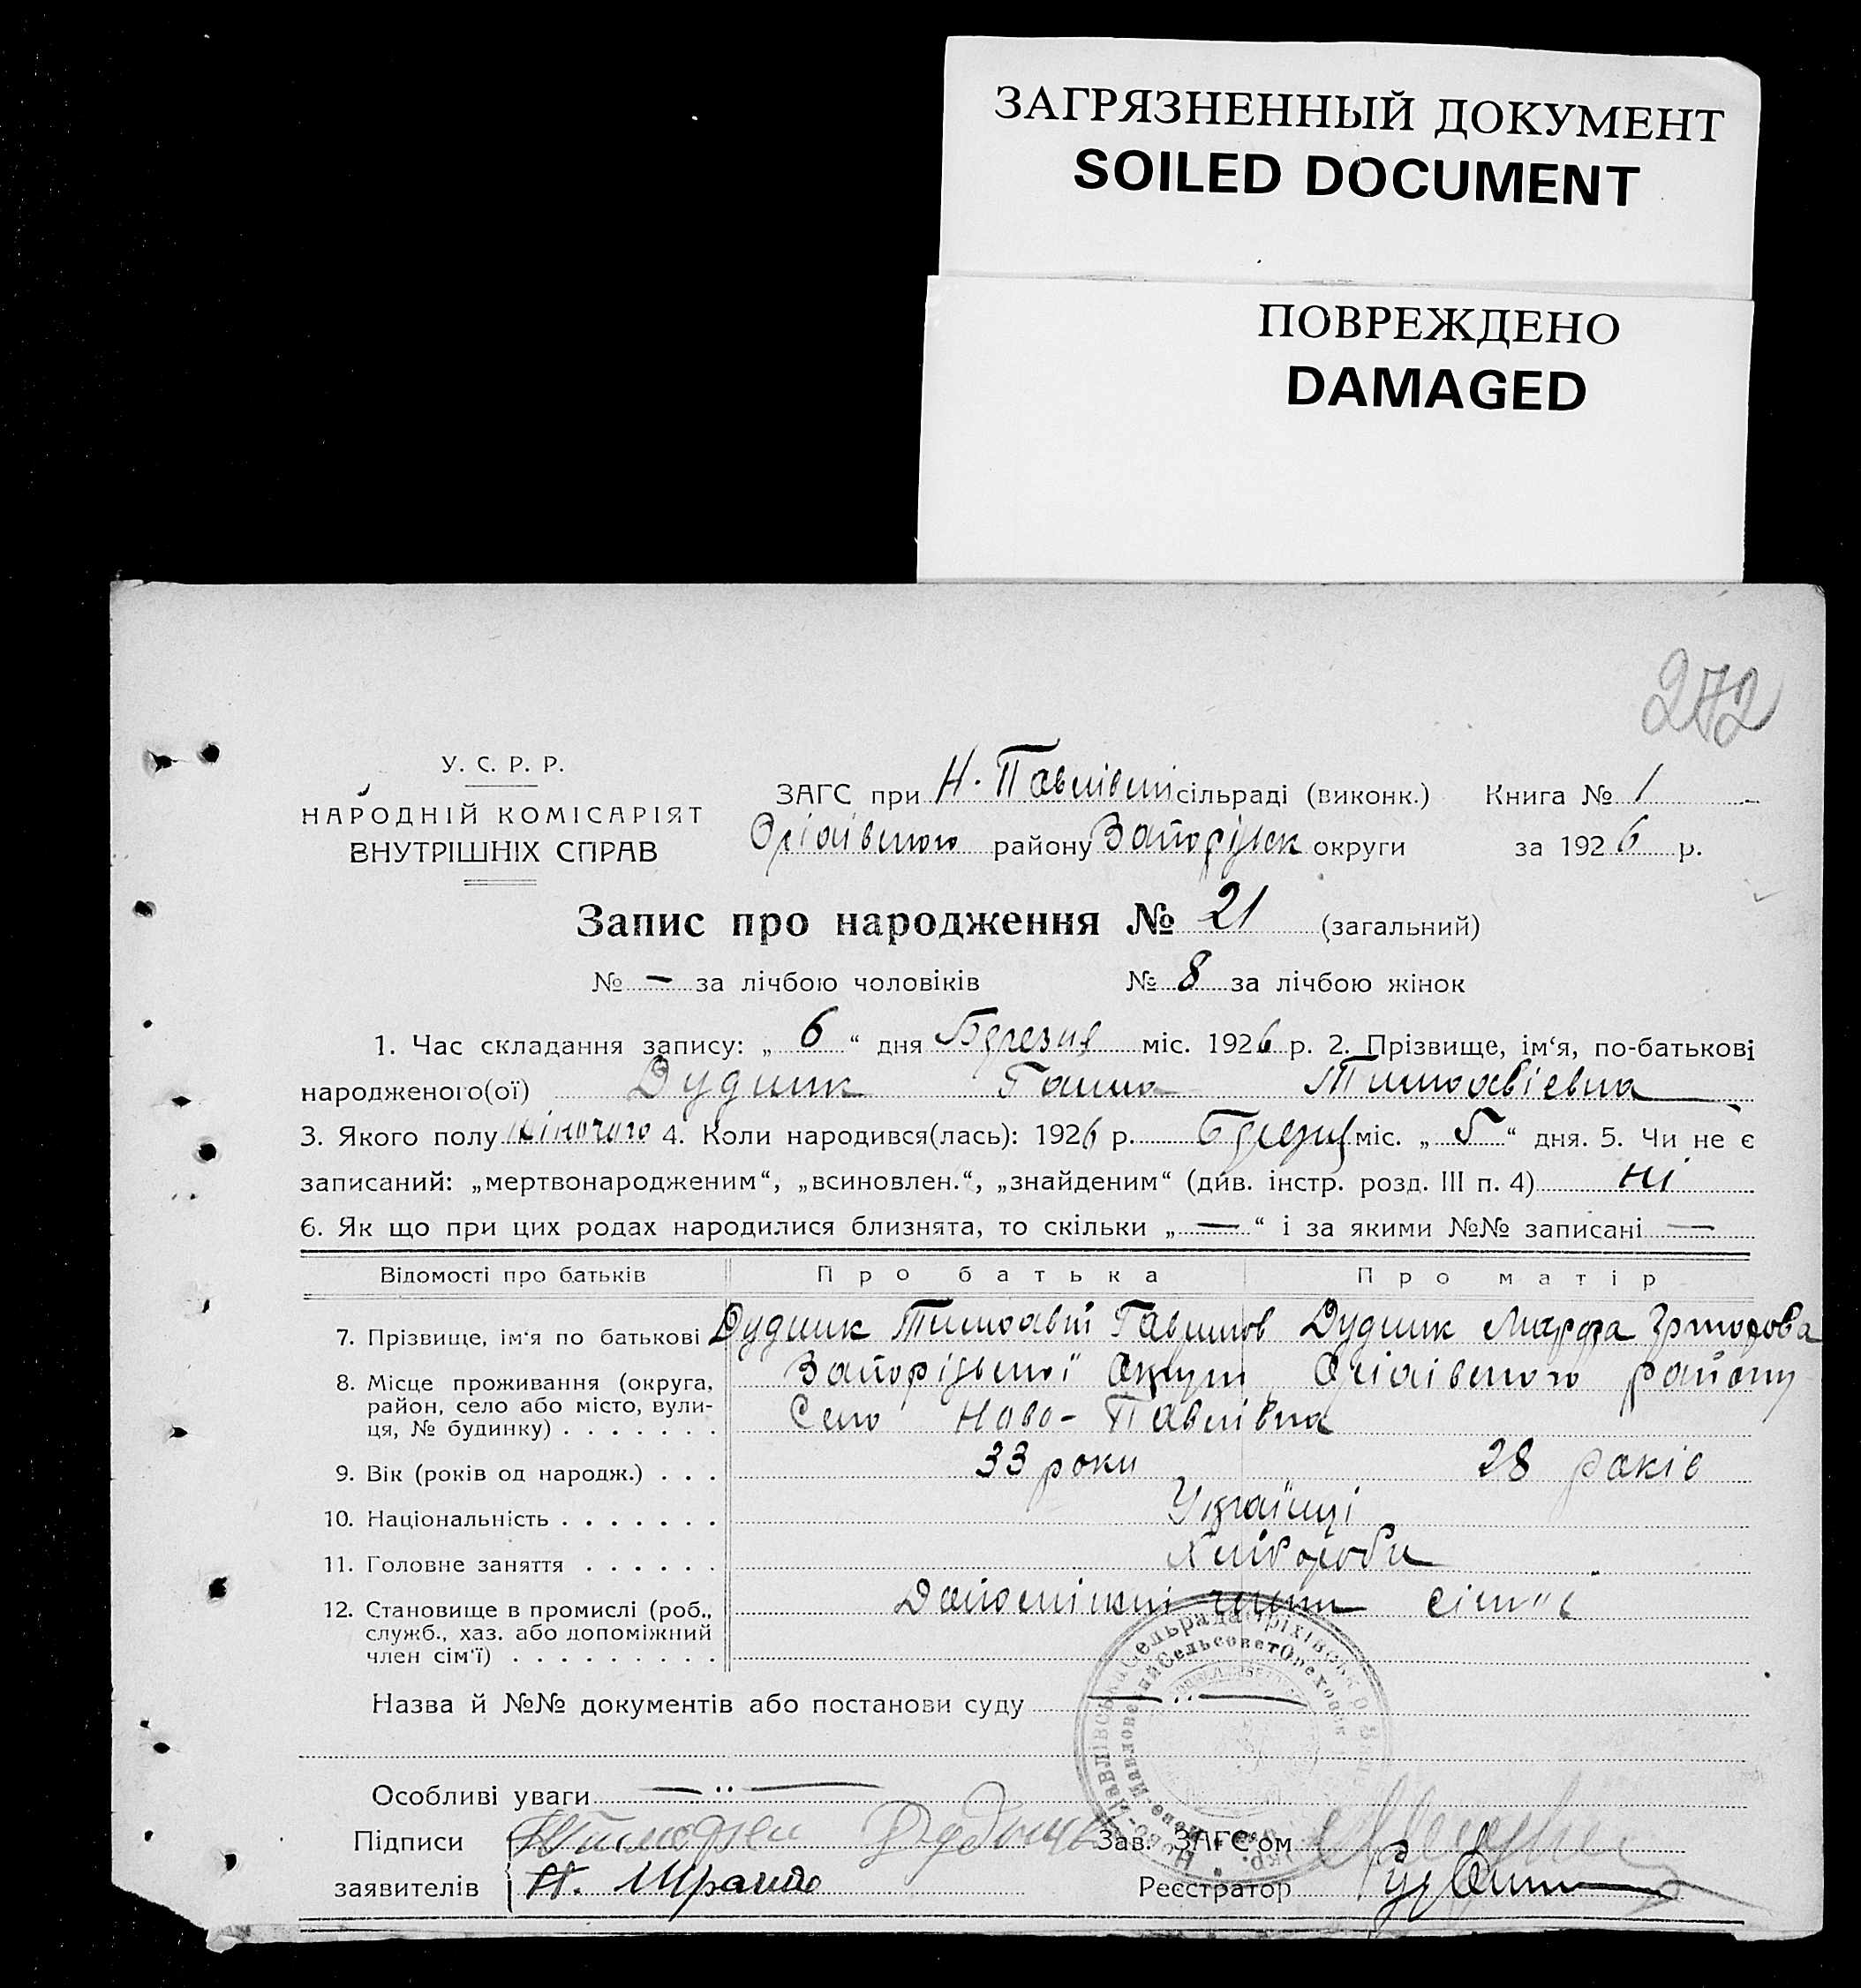 ЗАГРЯЗНЕННЫЙ ДОКУМЕНТ
SOILED DOCUMENT
ПОВРЕЖДЕНО
DAMAGED
272
У. С. Р. Р.
НАРОДНІЙ КОМІСАРІЯТ
ВНУТРІШНІХ СПРАВ
ЗАГС при Н. Павлівській сільраді (виконк.) Книга № 1
Оріхівського району Запоріжськ округи за 1926 р.
Запис про народження № 21 (загальний)
№ — за лічбою чоловіків № 8 за лічбою жінок
1. Час складання запису: „ 6 “ дня Березня міс. 1926 р. 2. Прізвище, ім‘я, по-батькові
народженого(ої) Дудник Ганна Тимофвіевна
3. Якого полу жіночого 4. Коли народився(лась): 1926 р. Березня міс. „ 5 “ дня. 5. Чи не є
записаний: „мертвонародженим“, „всиновлен.“, „знайденим“ (див. інстр. розд. III п. 4) Ні
6. Як що при цих родах народилися близнята, то скільки „ — “ і за якими №№ записані —
Відомості про батьків Про батька Про матір
7. Прізвище, ім‘я по батькові Дудник Дудник Марфа
8. Місце проживання (округа,
район, село або місто, вули-
ця, № будинку) . . . . . . .
Запоріжської Округи, Оріхівського району
Село Ново-Павлівка
9. Вік (років од народж.) . . . 33 роки 28 років
10. Національність . . . . . . . Українці
11. Головне заняття . . . . . . Хлібороби
12. Становище в промислі (роб.,
служб., хаз. або допоміжний
член сім‘ї) . . . . . . . . .
Допоміжні члени сім"ї
Назва й №№ документів або постанови суду — .. —
Особливі уваги — .. —
Підписи Зав. ЗАГС‘ом
заявителів Н. Реєстратор